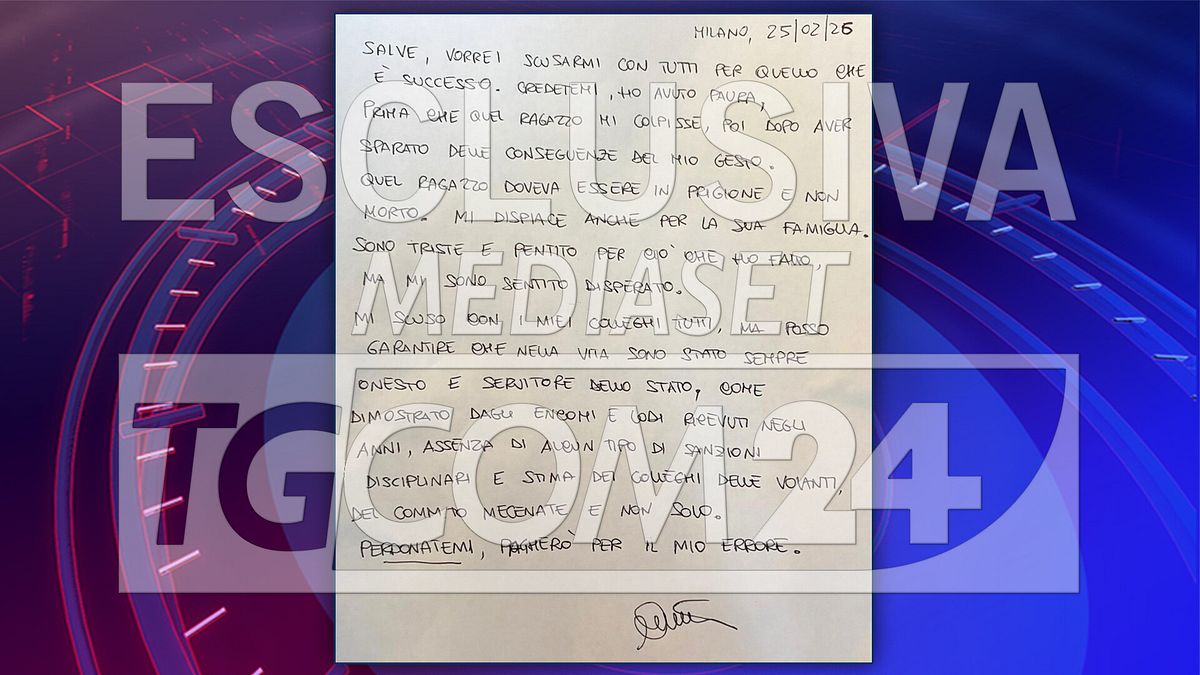 MILANO, 25/02/26
SALVE, VORREI SCUSARMI CON TUTTI PER QUELLO CHE
È SUCCESSO. CREDETEMI, HO AVUTO PAURA,
PRIMA CHE QUEL RAGAZZO MI COLPISSE, POI DOPO AVER
SPARATO DELLE CONSEGUENZE DEL MIO GESTO.
QUEL RAGAZZO DOVEVA ESSERE IN PRIGIONE E NON
MORTO. MI DISPIACE ANCHE PER LA SUA FAMIGLIA.
SONO TRISTE E PENTITO PER CIÒ CHE HO FATTO,
MA MI SONO SENTITO DISPERATO.
MI SCUSO CON I MIEI COLLEGHI TUTTI, MA POSSO
GARANTIRE CHE NELLA VITA SONO STATO SEMPRE
ONESTO E SERVITORE DELLO STATO, COME
DIMOSTRATO DAGLI ENCOMI E LODI RICEVUTI NEGLI
ANNI, ASSENZA DI ALCUN TIPO DI SANZIONI
DISCIPLINARI E STIMA DEI COLLEGHI DELLE VOLANTI,
DEL COMM.TO MECENATE E NON SOLO.
PERDONATEMI, PAGHERÒ PER IL MIO ERRORE.
ESCLUSIVA
MEDIASET
TGCOM24